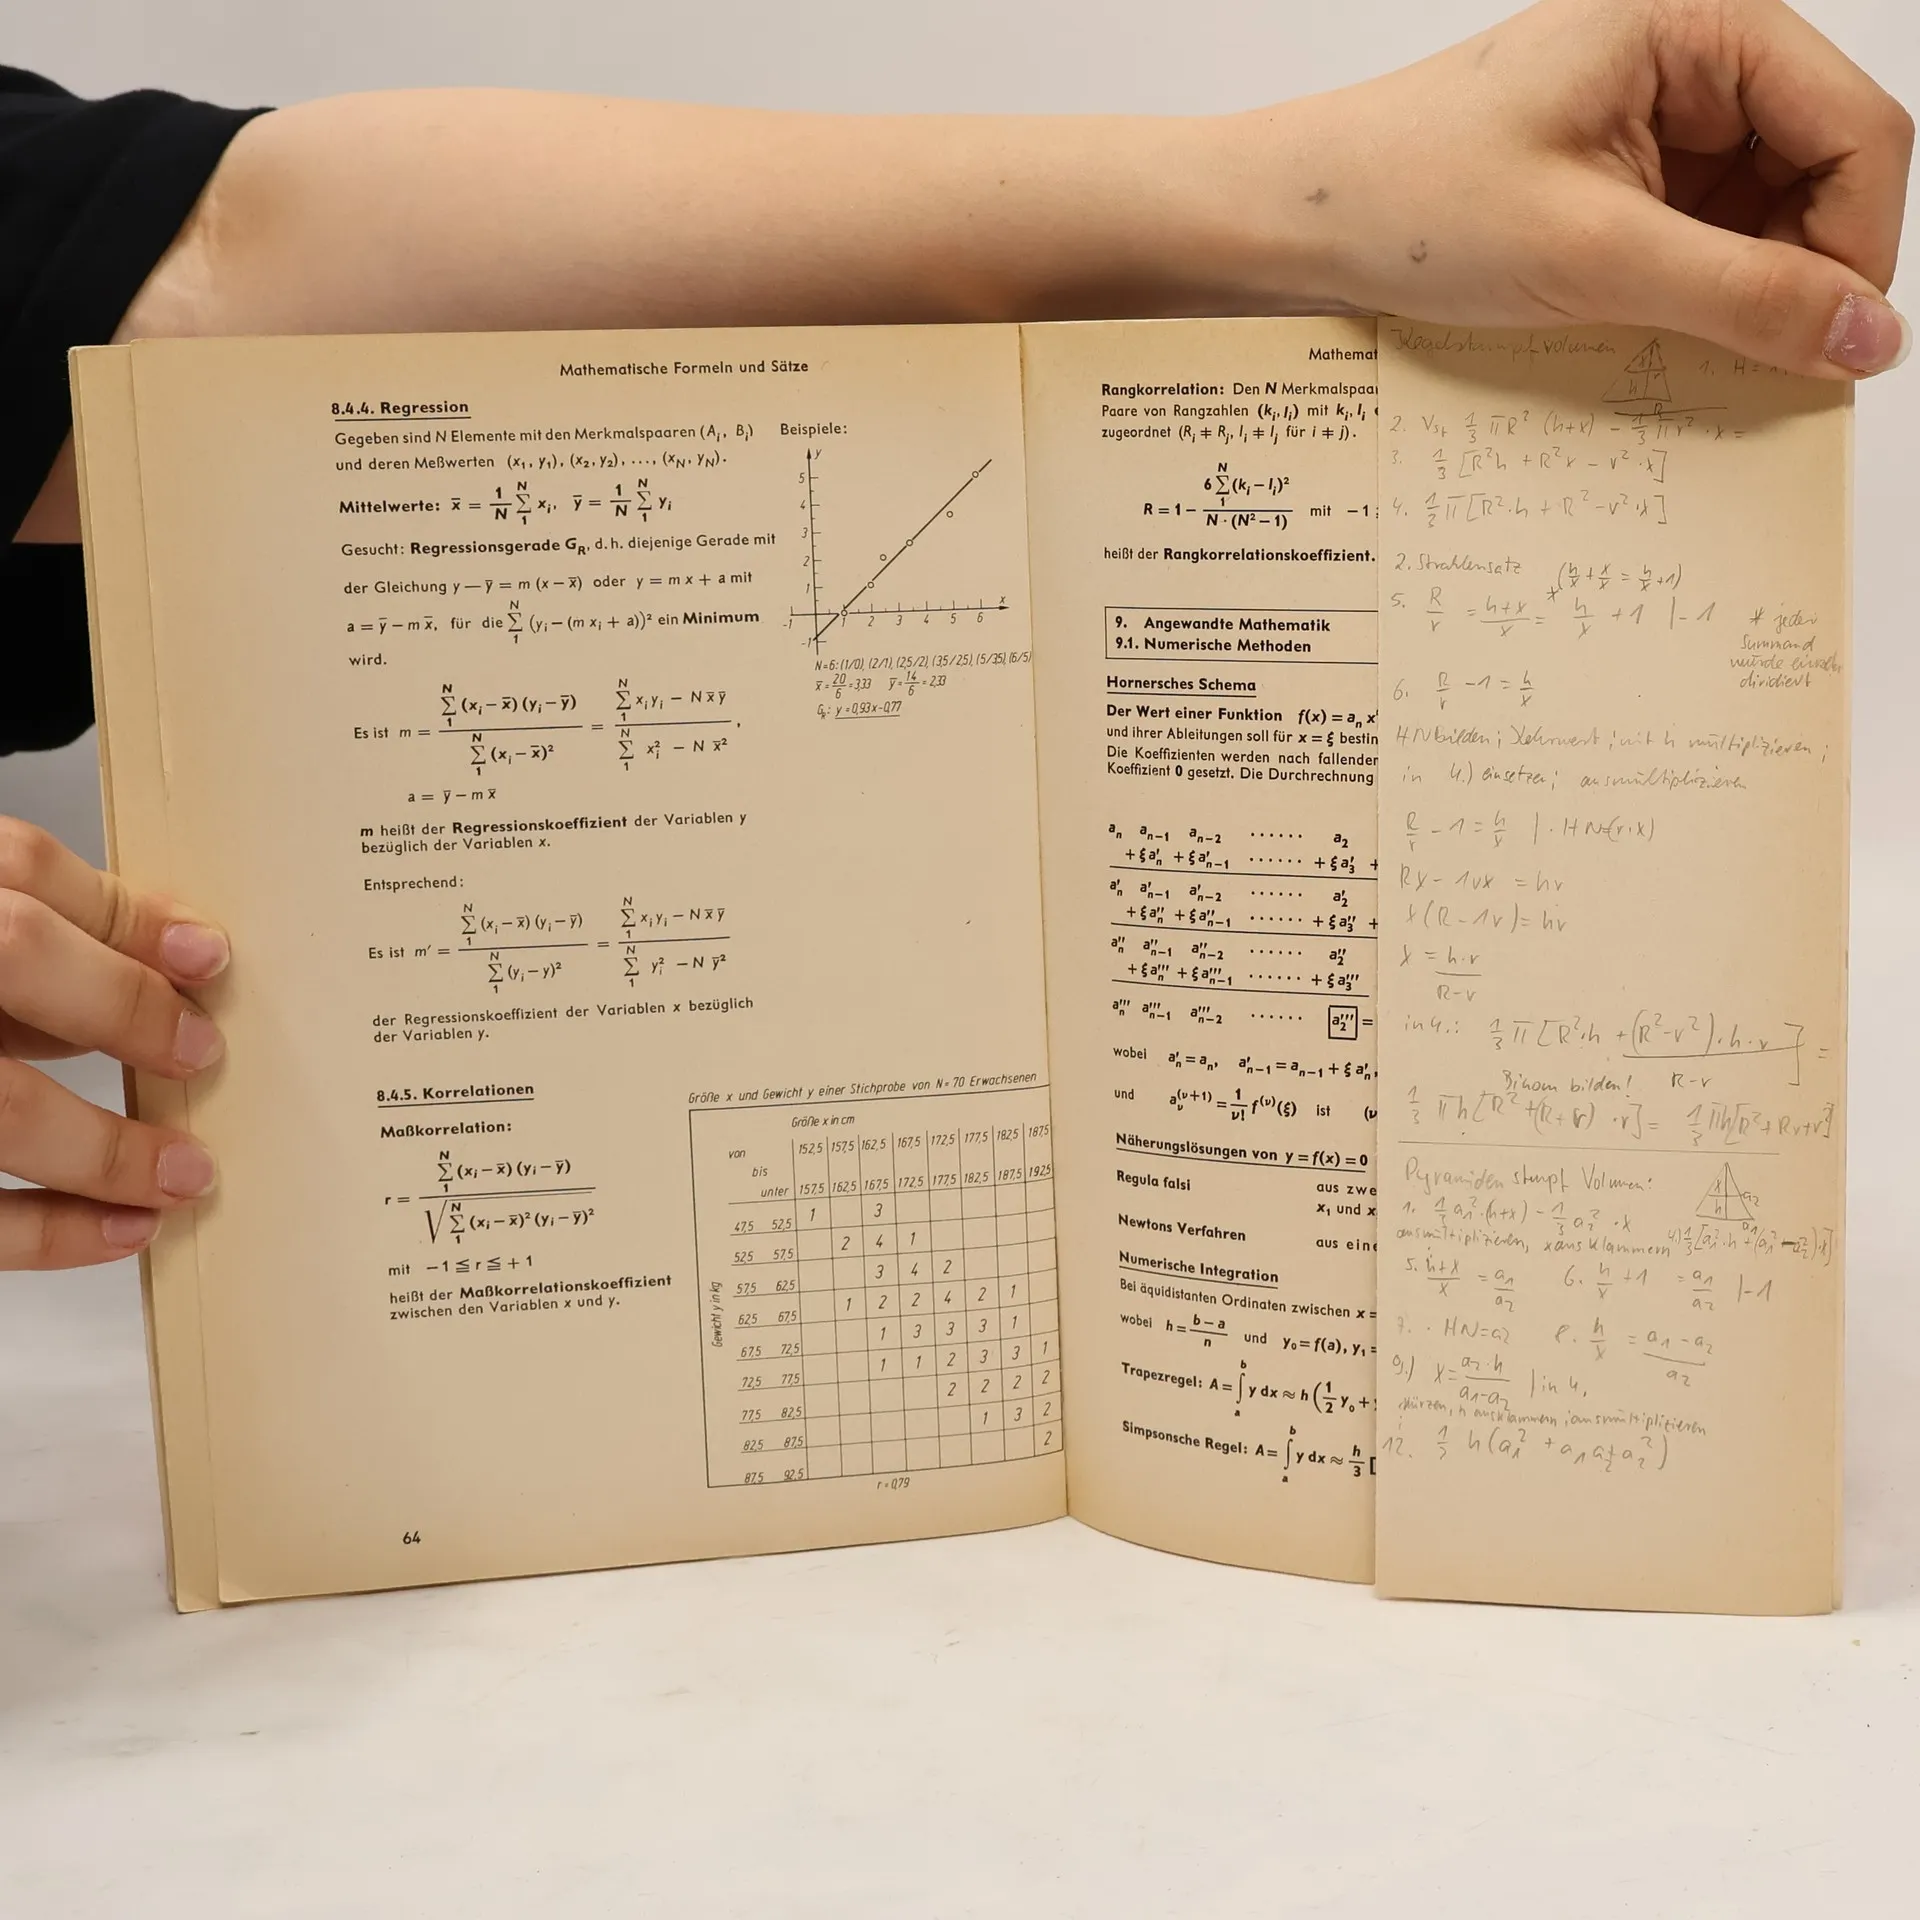 Mathematische Formeln und Sätze
8.4.4. Regression
Gegeben sind N Elemente mit den Merkmalspaaren (Aᵢ, Bᵢ)
und deren Meßwerten (x₁, y₁), (x₂, y₂), ..., (x_N, y_N).
Mittelwerte: x̄ = 1/N ∑₁ᴺ xᵢ, ȳ = 1/N ∑₁ᴺ yᵢ
Gesucht: Regressionsgerade G_R, d. h. diejenige Gerade mit
der Gleichung y — ȳ = m (x — x̄) oder y = m x + a mit
a = ȳ — m x̄, für die ∑₁ᴺ (yᵢ — (m xᵢ + a))² ein Minimum
wird.
Es ist m = ∑₁ᴺ (xᵢ — x̄) (yᵢ — ȳ) / ∑₁ᴺ (xᵢ — x̄)² = ∑₁ᴺ xᵢ yᵢ — N x̄ ȳ / ∑₁ᴺ xᵢ² — N x̄²,
a = ȳ — m x̄
m heißt der Regressionskoeffizient der Variablen y
bezüglich der Variablen x.
Entsprechend:
Es ist m′ = ∑₁ᴺ (xᵢ — x̄) (yᵢ — ȳ) / ∑₁ᴺ (yᵢ — y)² = ∑₁ᴺ xᵢ yᵢ — N x̄ ȳ / ∑₁ᴺ yᵢ² — N ȳ²
der Regressionskoeffizient der Variablen x bezüglich
der Variablen y.
Beispiele:
y
5
4
3
2
1
-1
x
-1 1 2 3 4 5 6
N=6: (1/0), (2/1), (2,5/2), (3,5/2,5), (5/3,5), (6/5)
x̄ = 20/6 = 3,33 ȳ = 14/6 = 2,33
G_R: y = 0,93x - 0,77
8.4.5. Korrelationen
Maßkorrelation:
r = ∑₁ᴺ (xᵢ — x̄) (yᵢ — ȳ) / √∑₁ᴺ (xᵢ — x̄)² (yᵢ — ȳ)²
mit —1 ≦ r ≦ +1
heißt der Maßkorrelationskoeffizient
zwischen den Variablen x und y.
Größe x und Gewicht y einer Stichprobe von N = 70 Erwachsenen
Größe x in cm
von 152,5 157,5 162,5 167,5 172,5 177,5 182,5 187,5
bis
unter 157,5 162,5 167,5 172,5 177,5 182,5 187,5 192,5
Gewicht y in kg
47,5 52,5 1 3
52,5 57,5 2 4 1
57,5 62,5 3 4 2
62,5 67,5 1 2 2 4 2 1
67,5 72,5 1 3 3 3 1
72,5 77,5 1 1 2 3 3 1
77,5 82,5 2 2 2 2
82,5 87,5 1 3 2
87,5 92,5 2
r = 0,79
64
Mathemat
Rangkorrelation: Den N Merkmalspaa
Paare von Rangzahlen (kᵢ, lᵢ) mit kᵢ, lᵢ
zugeordnet (Rᵢ ≠ Rⱼ, lᵢ ≠ lⱼ für i ≠ j).
R = 1 — 6 ∑₁ᴺ (kᵢ — lᵢ)² / N · (N² — 1) mit —1
heißt der Rangkorrelationskoeffizient.
9. Angewandte Mathematik
9.1. Numerische Methoden
Hornersches Schema
Der Wert einer Funktion f(x) = aₙ x
und ihrer Ableitungen soll für x = ξ bestin
Die Koeffizienten werden nach fallender
Koeffizient 0 gesetzt. Die Durchrechnung
aₙ aₙ₋₁ aₙ₋₂ ...... a₂
+ξa′ₙ +ξa′ₙ₋₁ ...... +ξa′₃ +
a′ₙ a′ₙ₋₁ a′ₙ₋₂ ...... a′₂
+ξa″ₙ +ξa″ₙ₋₁ ...... +ξa″₃ +
a″ₙ a″ₙ₋₁ a″ₙ₋₂ ...... a″₂
+ξa‴ₙ +ξa‴ₙ₋₁ ...... +ξa‴₃
a‴ₙ a‴ₙ₋₁ a‴ₙ₋₂ ...... a‴₂ =
wobei a′ₙ = aₙ, a′ₙ₋₁ = aₙ₋₁ + ξ a′ₙ,
und a_ν^(ν+1) = 1/ν! f^(ν)(ξ) ist (ν
Näherungslösungen von y = f(x) = 0
Regula falsi aus zwe
x₁ und x
Newtons Verfahren aus eine
Numerische Integration
Bei äquidistanten Ordinaten zwischen x =
wobei h = b — a / n und y₀ = f(a), y₁ =
Trapezregel: A = ∫ₐᵇ y dx ≈ h (1/2 y₀ +
Simpsonsche Regel: A = ∫ₐᵇ y dx ≈ h/3 [
Kegelstumpf volumen
x r h R
1. H =
2. V_St 1/3 πR² (h+x) - 1/3 πr² · x =
3. 1/3 [R²h + R²x - r² · x]
4. 1/3 π [R²·h + R² - r²·x]
2. Strahlensatz (h/x + x/x = h/x + 1)
5. R/r = h+x/x =* h/x + 1 | - 1
* jeder
Summand
wurde einzeln
dividiert
6. R/r - 1 = h/x
HN bilden; Kehrwert; mit h multiplizieren;
in 4.) einsetzen; ausmultiplizieren
R/r - 1 = h/x | · HN=(r·x)
Rx - 1rx = hr
x (R - 1r) = hr
x = h·r / R-r
in 4.: 1/3 π [R²·h + (R²-r²)·h·r / R-r] =
Binom bilden!
1/3 πh [R² + (R+r) · r] = 1/3 πh[R² + Rr + r²]
Pyramidenstumpf Volumen:
x h a₂ a₁
1. 1/3 a₁² · (h+x) - 1/3 a₂² · x
ausmultiplizieren, x ausklammern 4.) 1/3 [a₁²·h + (a₁² - a₂²)·x]
5. h+x/x = a₁/a₂ 6. h/x + 1 = a₁/a₂ | -1
7. · HN = a₂ 8. h/x = a₁-a₂ / a₂
9.) x = a₂·h / a₁-a₂ | in 4.
kürzen, h ausklammern; ausmultiplizieren
12. 1/3 h (a₁² + a₁a₂ + a₂²)